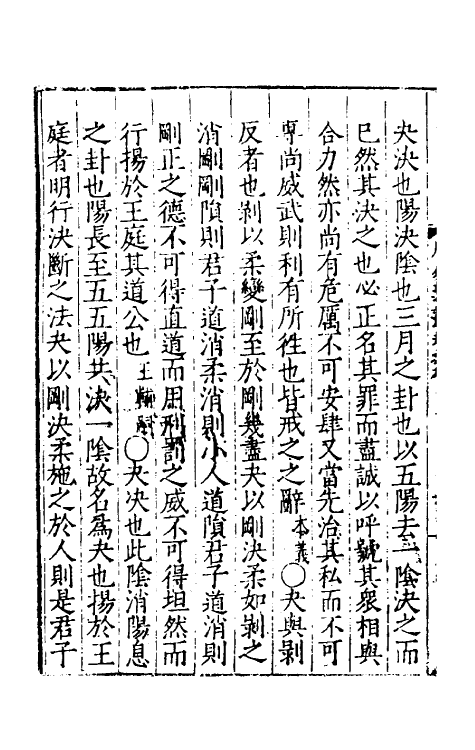 夬決也陽決陰也三月之卦也以五陽去一陰決之而
已然其決之也必正名其罪而盡誠以呼號其衆相與
合力然亦尚有危厲不可安肆又當先治其私而不可
專尚威武則利有所徃也皆戒之之辭本義○夬與剝
反者也剝以柔變剛至於剛幾盡夬以剛決柔如剝之
消剛剛隕則君子道消柔消則小人道隕君子道消則
剛正之德不可得直道而用刑罰之威不可得坦然而
行揚於王庭其道公也王輔嗣○夬决也此陰消陽息
之卦也陽長至五五陽共決一陰故名爲夬也揚於王
庭者明行決斷之法夬以剛決柔施之於人則是君子